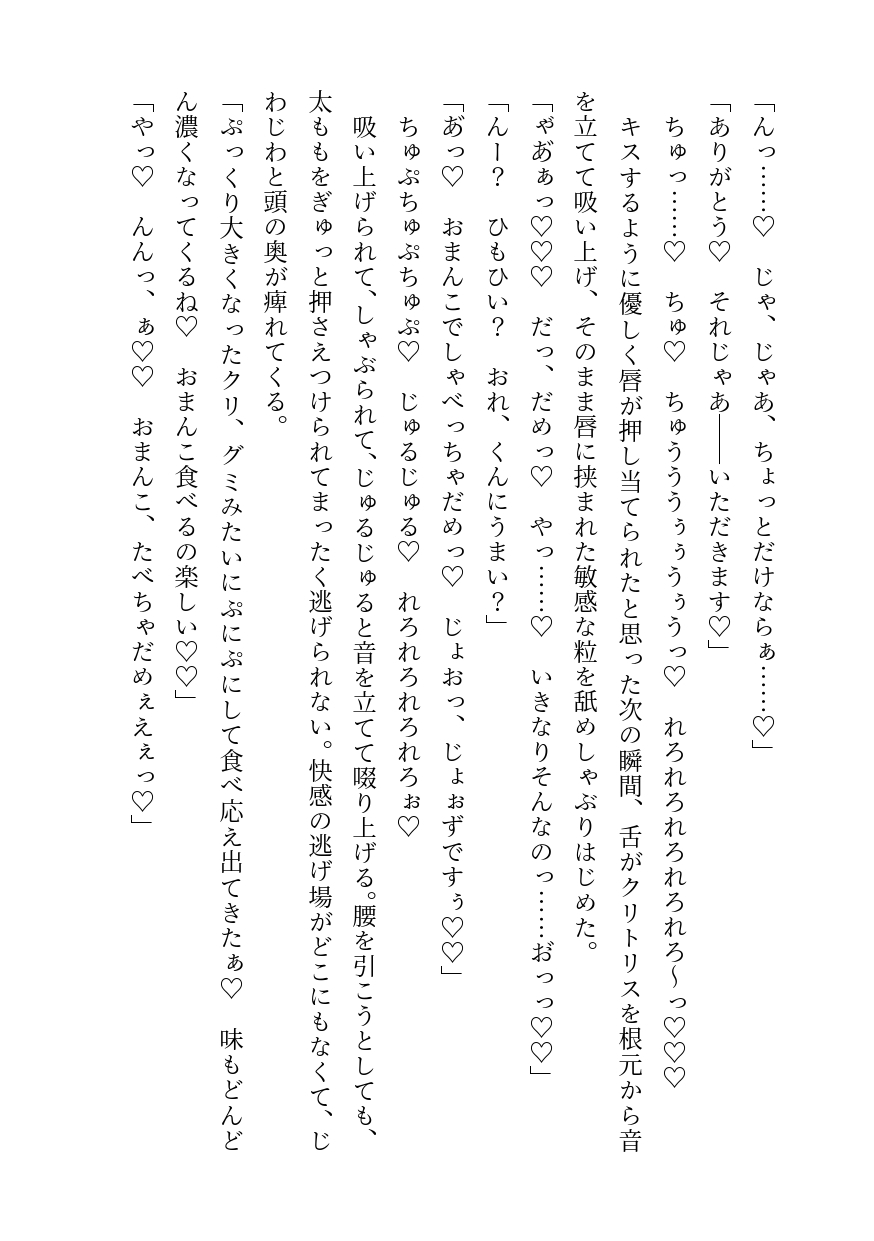 「んっ……♡　じゃ、じゃあ、ちょっとだけならぁ……♡」
「ありがとう♡　それじゃあ――いただきます♡」
　ちゅっ……♡　ちゅ♡　ちゅうううぅぅうぅうっ♡　れろれろれろれろれろ～っ♡♡♡
　キスするように優しく唇が押し当てられたと思った次の瞬間、舌がクリトリスを根元から音
を立てて吸い上げ、そのまま唇に挟まれた敏感な粒を舐めしゃぶりはじめた。
「ゃ゛あ゛ぁっ♡♡♡　だっ、だめっ♡　やっ……♡　いきなりそんなのっ……お゛っっ♡♡」
「んー？　ひもひい？　おれ、くんにうまい？」
「あ゛っ♡　おまんこでしゃべっちゃだめっ♡　じょおっ、じょぉずですぅ♡♡」
　ちゅぷちゅぷちゅぷ♡　じゅるじゅる♡　れろれろれろれろぉ♡
　吸い上げられて、しゃぶられて、じゅるじゅると音を立てて啜り上げる。腰を引こうとしても、
太ももをぎゅっと押さえつけられてまったく逃げられない。快感の逃げ場がどこにもなくて、じ
わじわと頭の奥が痺れてくる。
「ぷっくり大きくなったクリ、グミみたいにぷにぷにして食べ応え出てきたぁ♡　味もどんど
ん濃くなってくるね♡　おまんこ食べるの楽しい♡♡」
「やっ♡　んんっ、ぁ♡♡　おまんこ、たべちゃだめぇえぇっ♡」